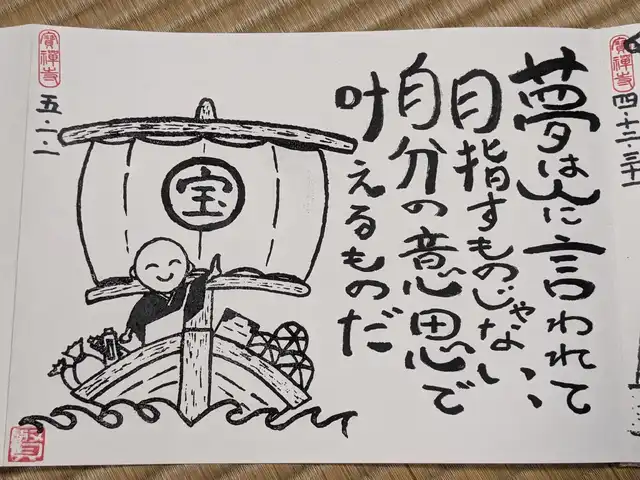 四・十二・三十一
夢は人に言われて
目指すものじゃない、
自分の意思で
叶えるものだ
宝
寶禅寺
五・一・一
賢